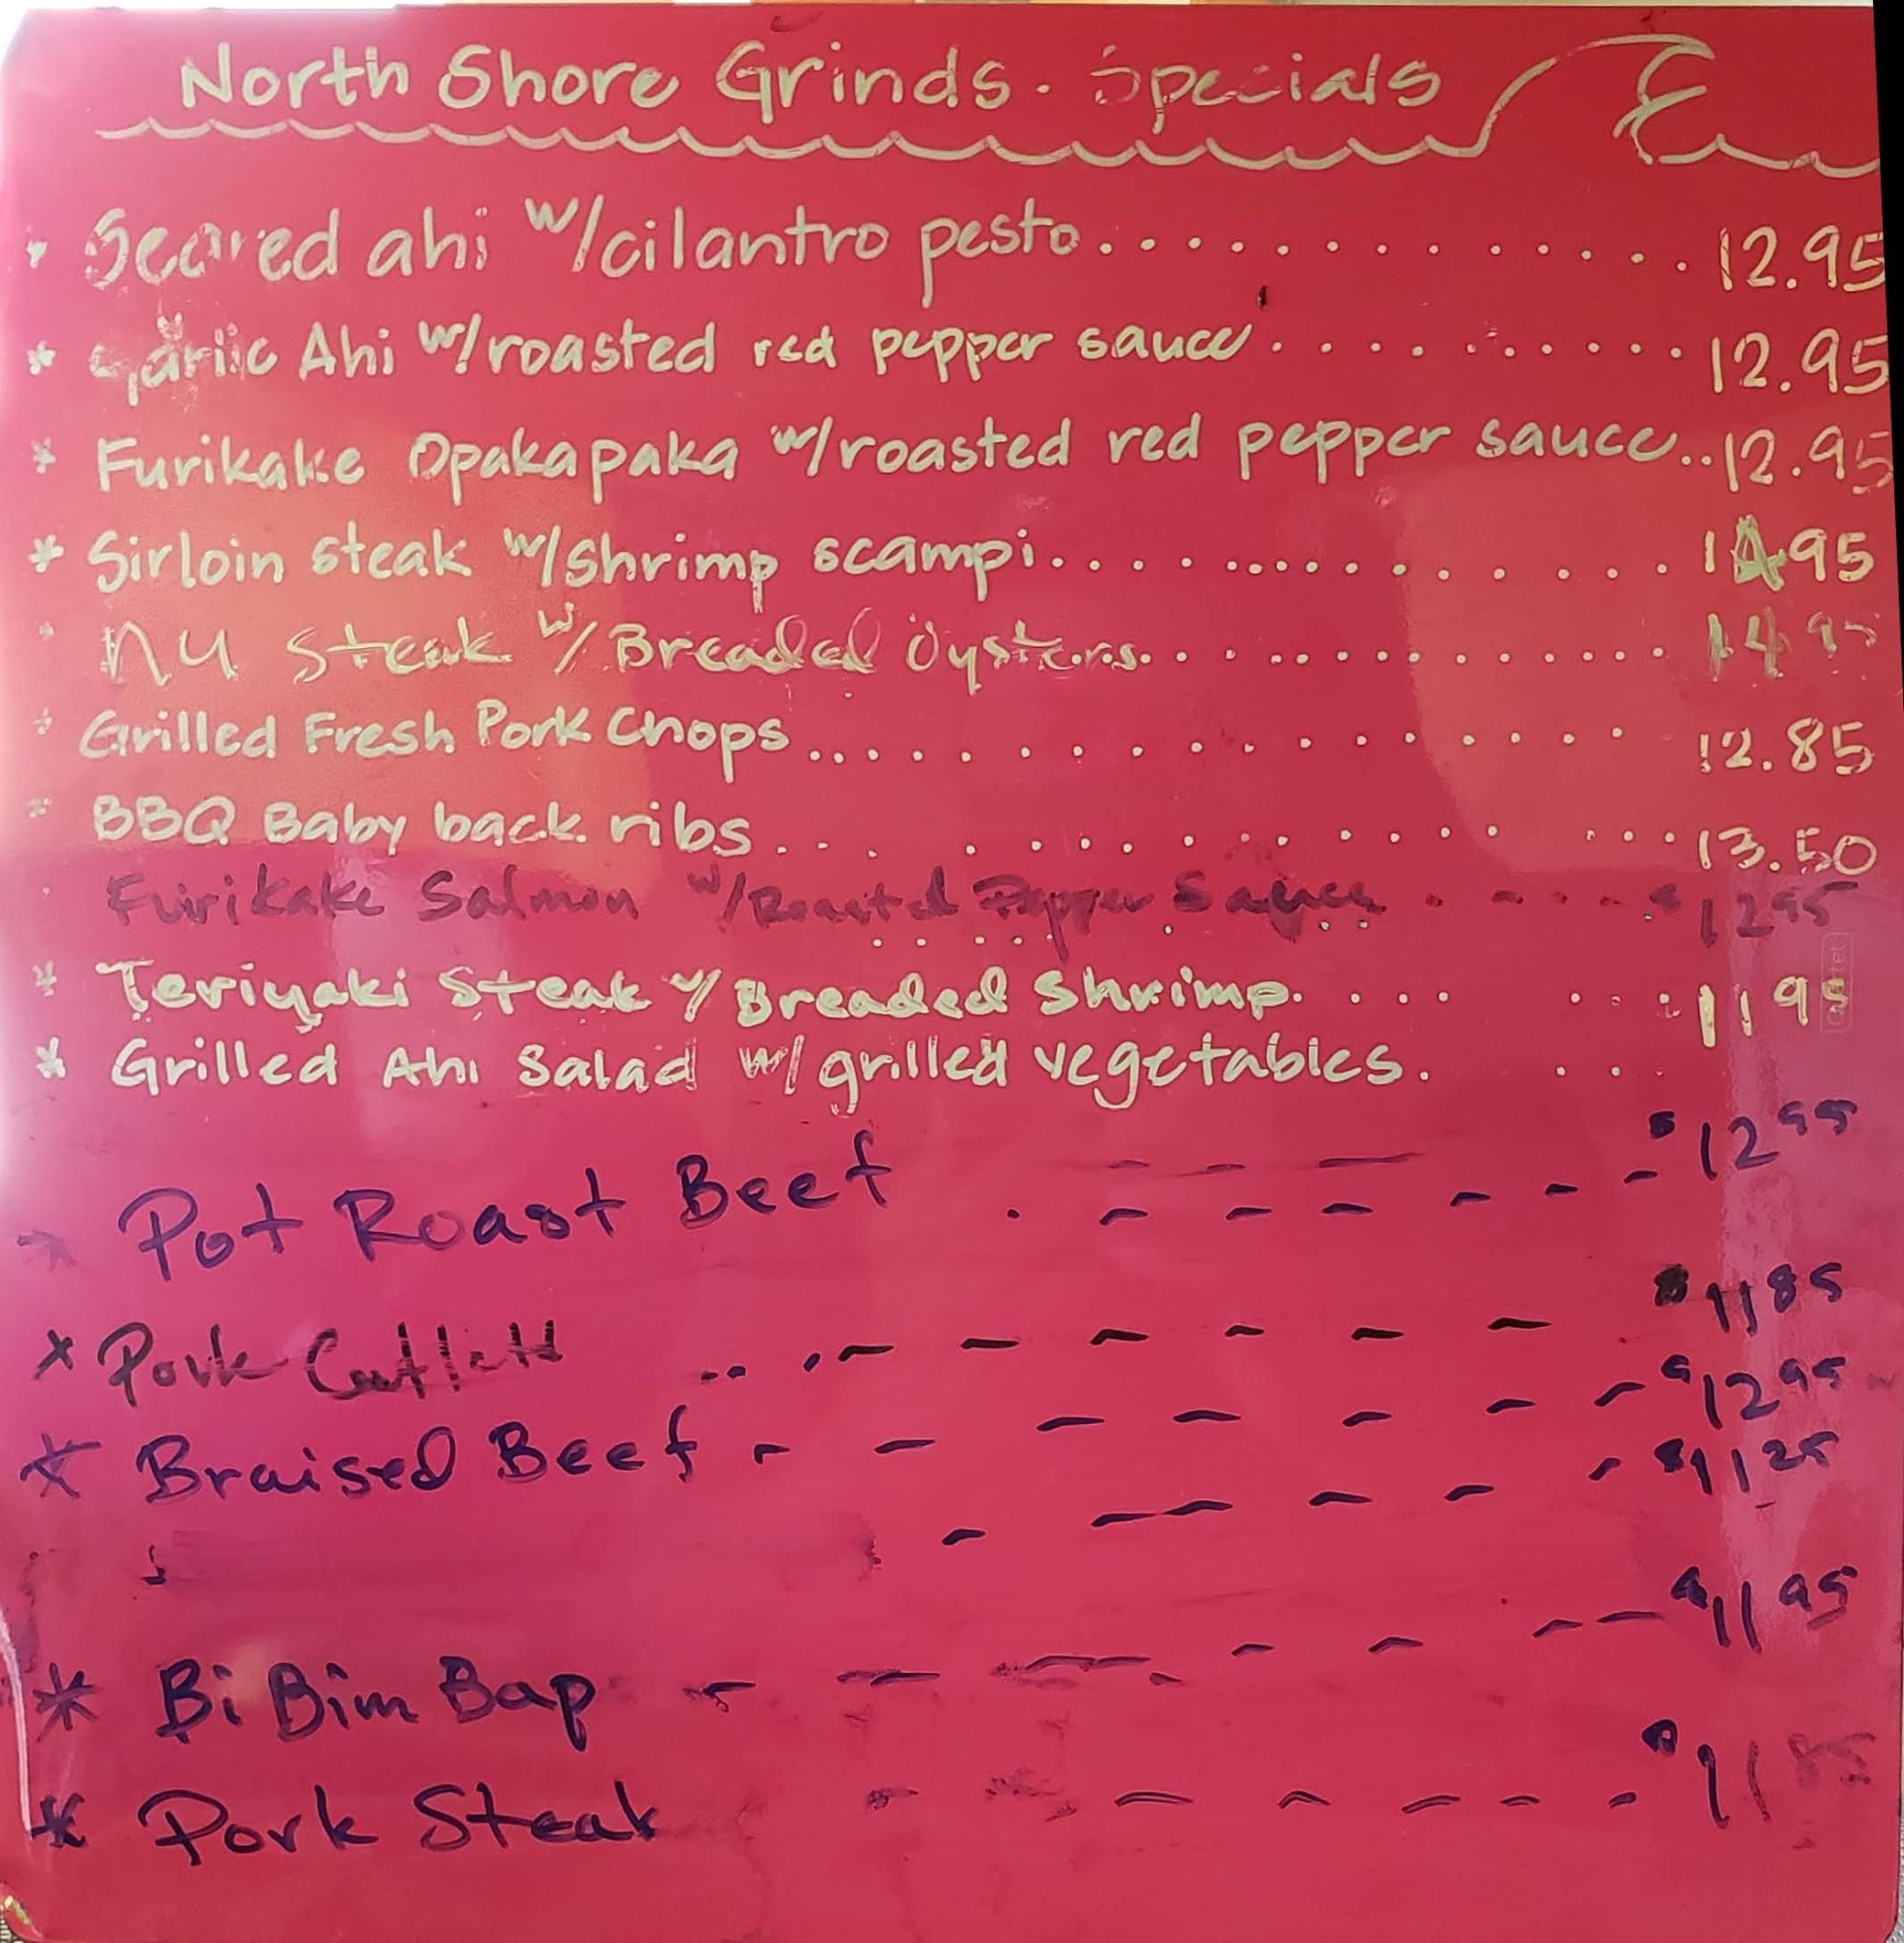 North Shore Grinds. Specials
* Seared ahi w/cilantro pesto.............. 12.95
* Garlic Ahi w/roasted red pepper sauce........... 12.95
* Furikake Opakapaka w/roasted red pepper sauce.. 12.95
* Sirloin steak w/shrimp scampi................ 14 95
* NY Steak w/ Breaded Oysters............... 14 95
* Grilled Fresh Pork Chops................. 12.85
* BBQ Baby back ribs............... 13.50
Furikake Salmon w/Roasted Pepper Sauce . - - - - - $12 95
* Teriyaki Steak w/ Breaded Shrimp.... ... 11 95
* Grilled Ahi Salad w/grilled vegetables. ...
* Pot Roast Beef . - - - - - - $12 95
* Pork Cutlett .. - - - - - - $11 85
* Braised Beef - - - - - - - $12 95
- - - - - - $11 25
* Bi Bim Bap - - - - - - - $11 95
* Pork Steak - - - - - - - $11 85